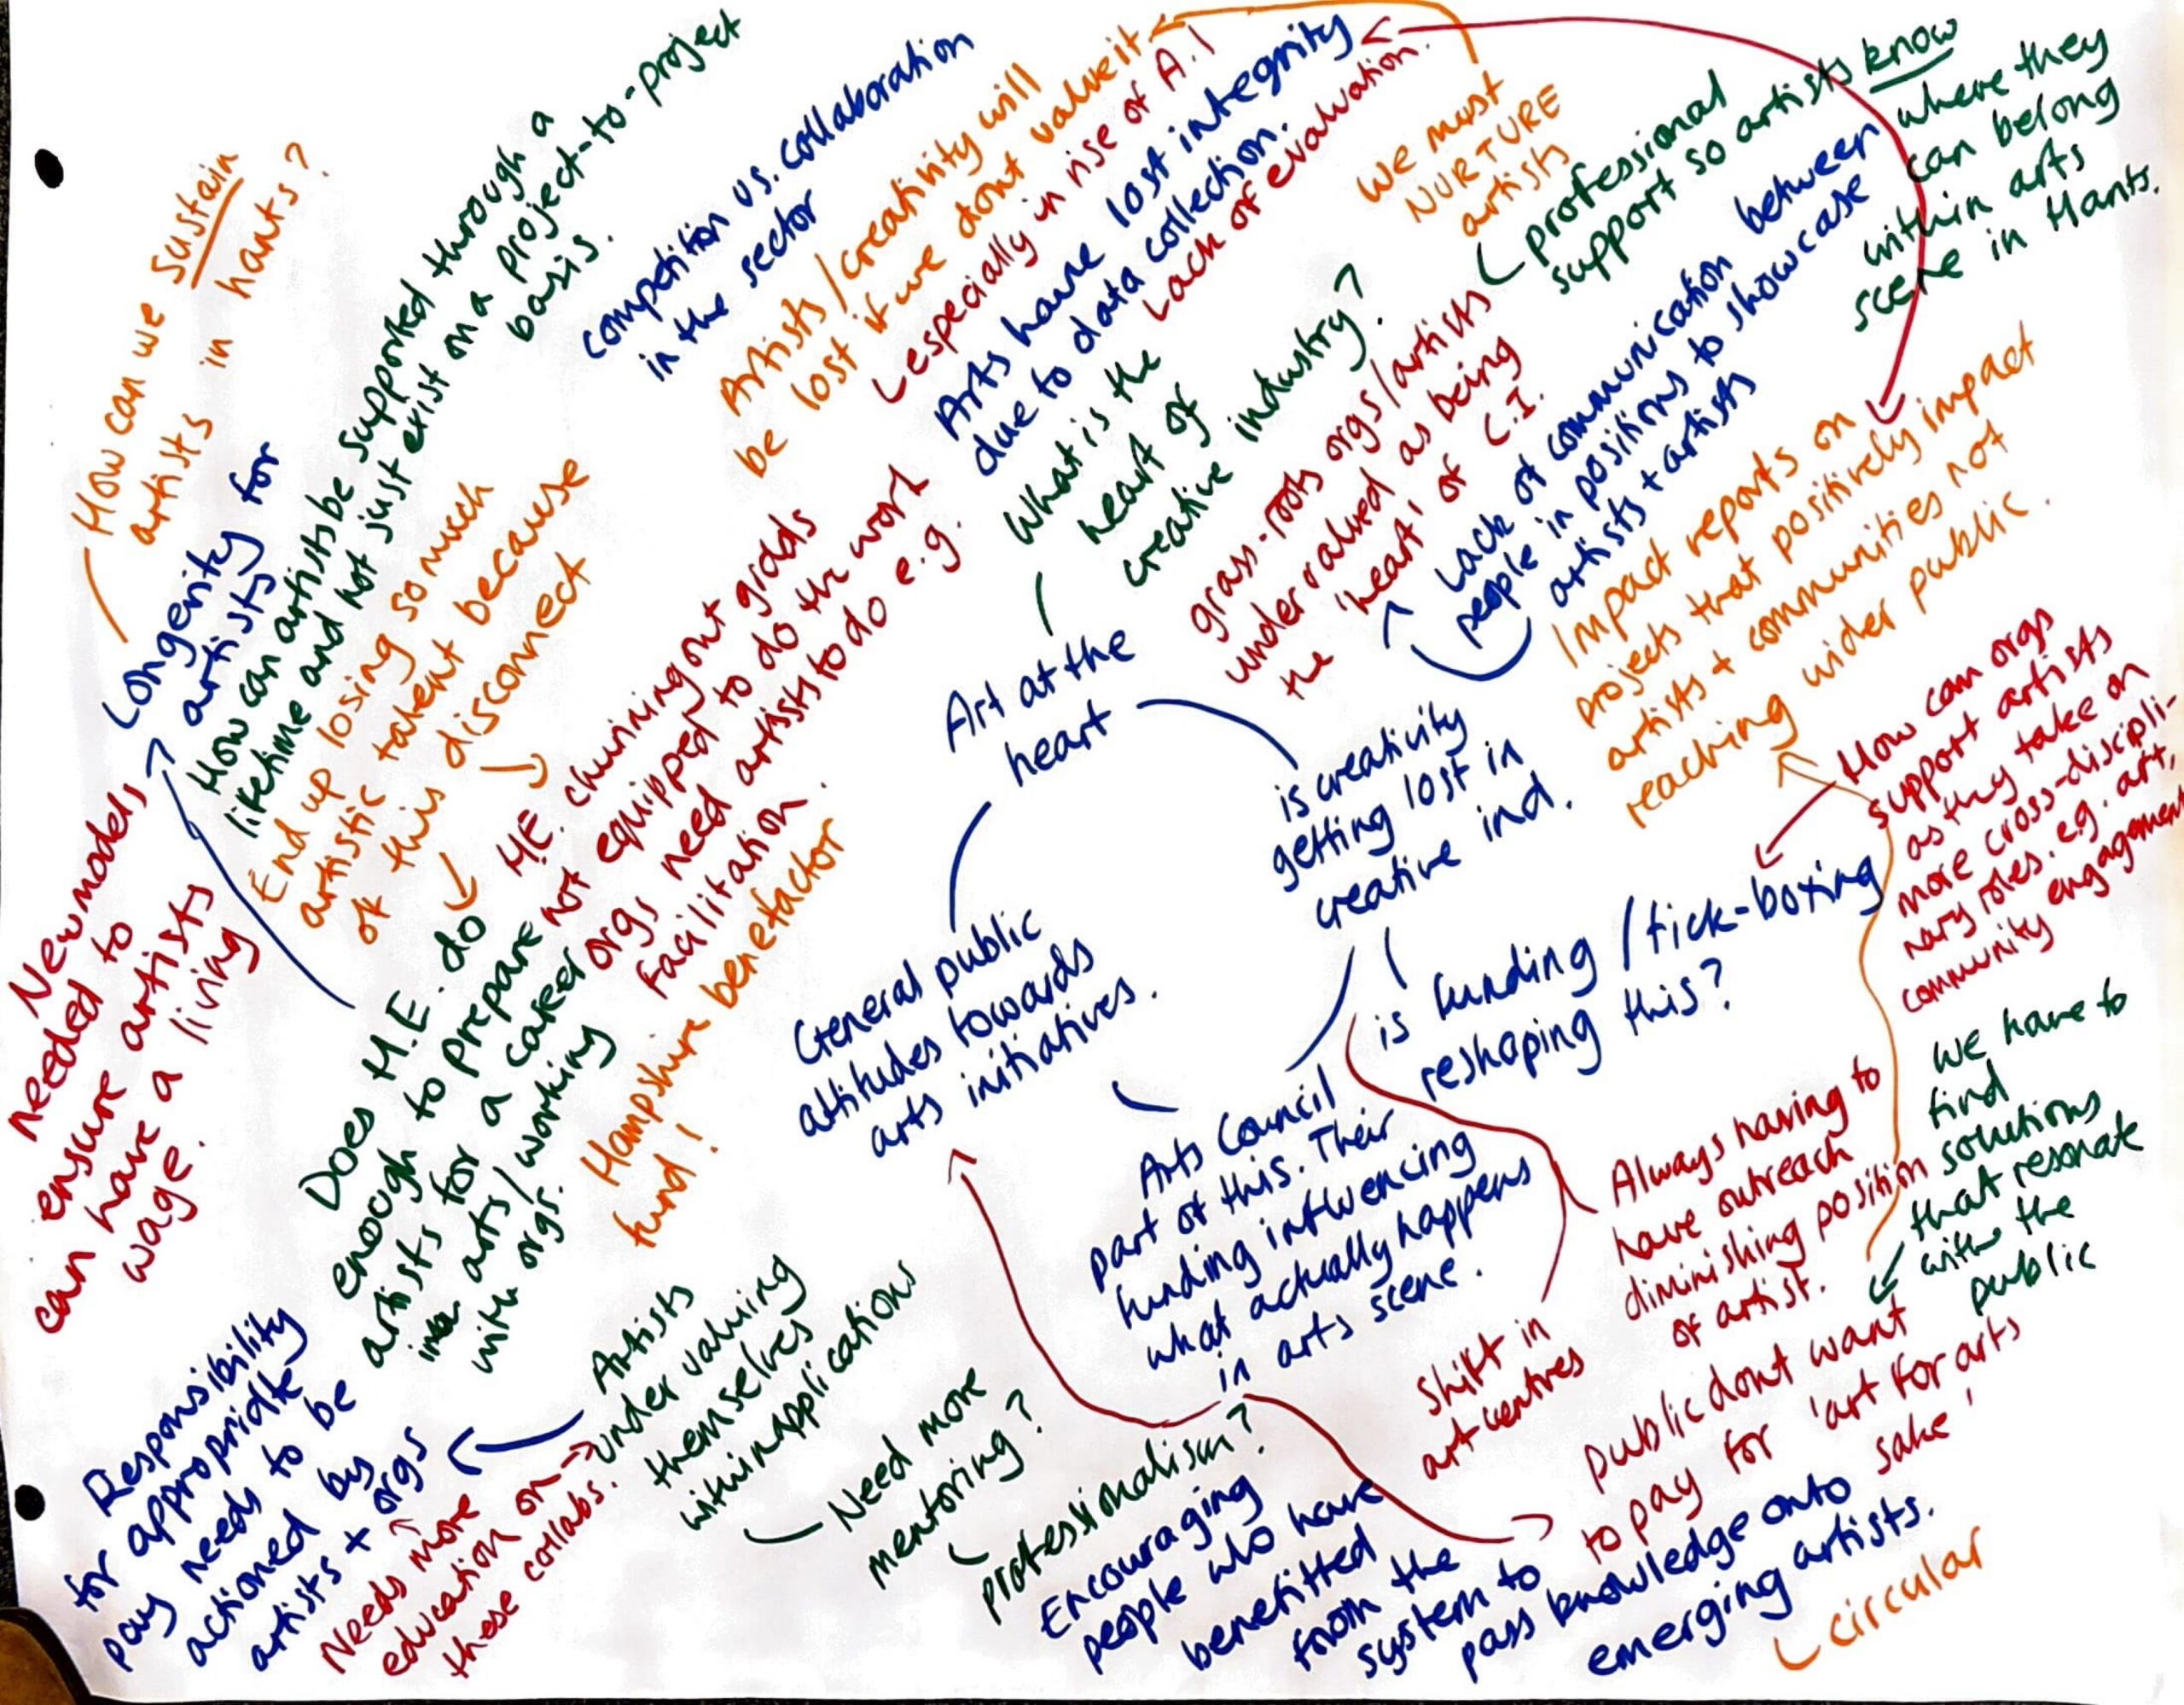 How can we sustain
artists in hants?
Longevity for
artists
How can artists be supported through a
lifetime and not just exist on a project-to-project
basis.
competition vs. collaboration
in the sector
Artists/creativity will
be lost if we dont value it
especially in rise of A.I
Arts have lost integrity
due to data collection.
Lack of evaluation.
We must
NURTURE
artists
professional
support so artists know
where they
can belong
within arts
scene in Hants.
What is the
heart of
creative industry?
grass-roots orgs/artists
undervalued as being
the 'heart' of C.I.
Lack of communication between
people in positions to showcase
artists + artists
Impact reports on
projects that positively impact
artists + communities not
reaching wider public.
How can orgs
support artists
as they take on
more cross-discipli-
nary roles. e.g. art,
community engagement
End up losing so much
artistic talent because
of this disconnect
H.E. churning out grads
not equipped to do the work
orgs need artists to do e.g.
facilitation.
Art at the
heart
is creativity
getting lost in
creative ind.
is funding / tick-boxing
reshaping this?
General public
attitudes towards
arts initiatives.
Arts Council
part of this. Their
funding influencing
what actually happens
in arts scene.
New models
needed to
ensure artists
can have a living
wage.
Does H.E. do
enough to prepare
artists for a career
in arts/working
with orgs.
Hampshire benefactor
fund!
Always having to
have outreach
diminishing position
of artist.
we have to
find
solutions
that resonate
with the
public
Shift in
art centres
public dont want
to pay for 'art for arts
sake'
Responsibility
for appropriate
pay needs to be
actioned by
artists + orgs
Needs more
education on
these collabs.
Artists
undervaluing
themselves
within applications
Need more
mentoring?
professionalism?
Encouraging
people who have
benefitted
from the
system to
pass knowledge onto
emerging artists.
circular